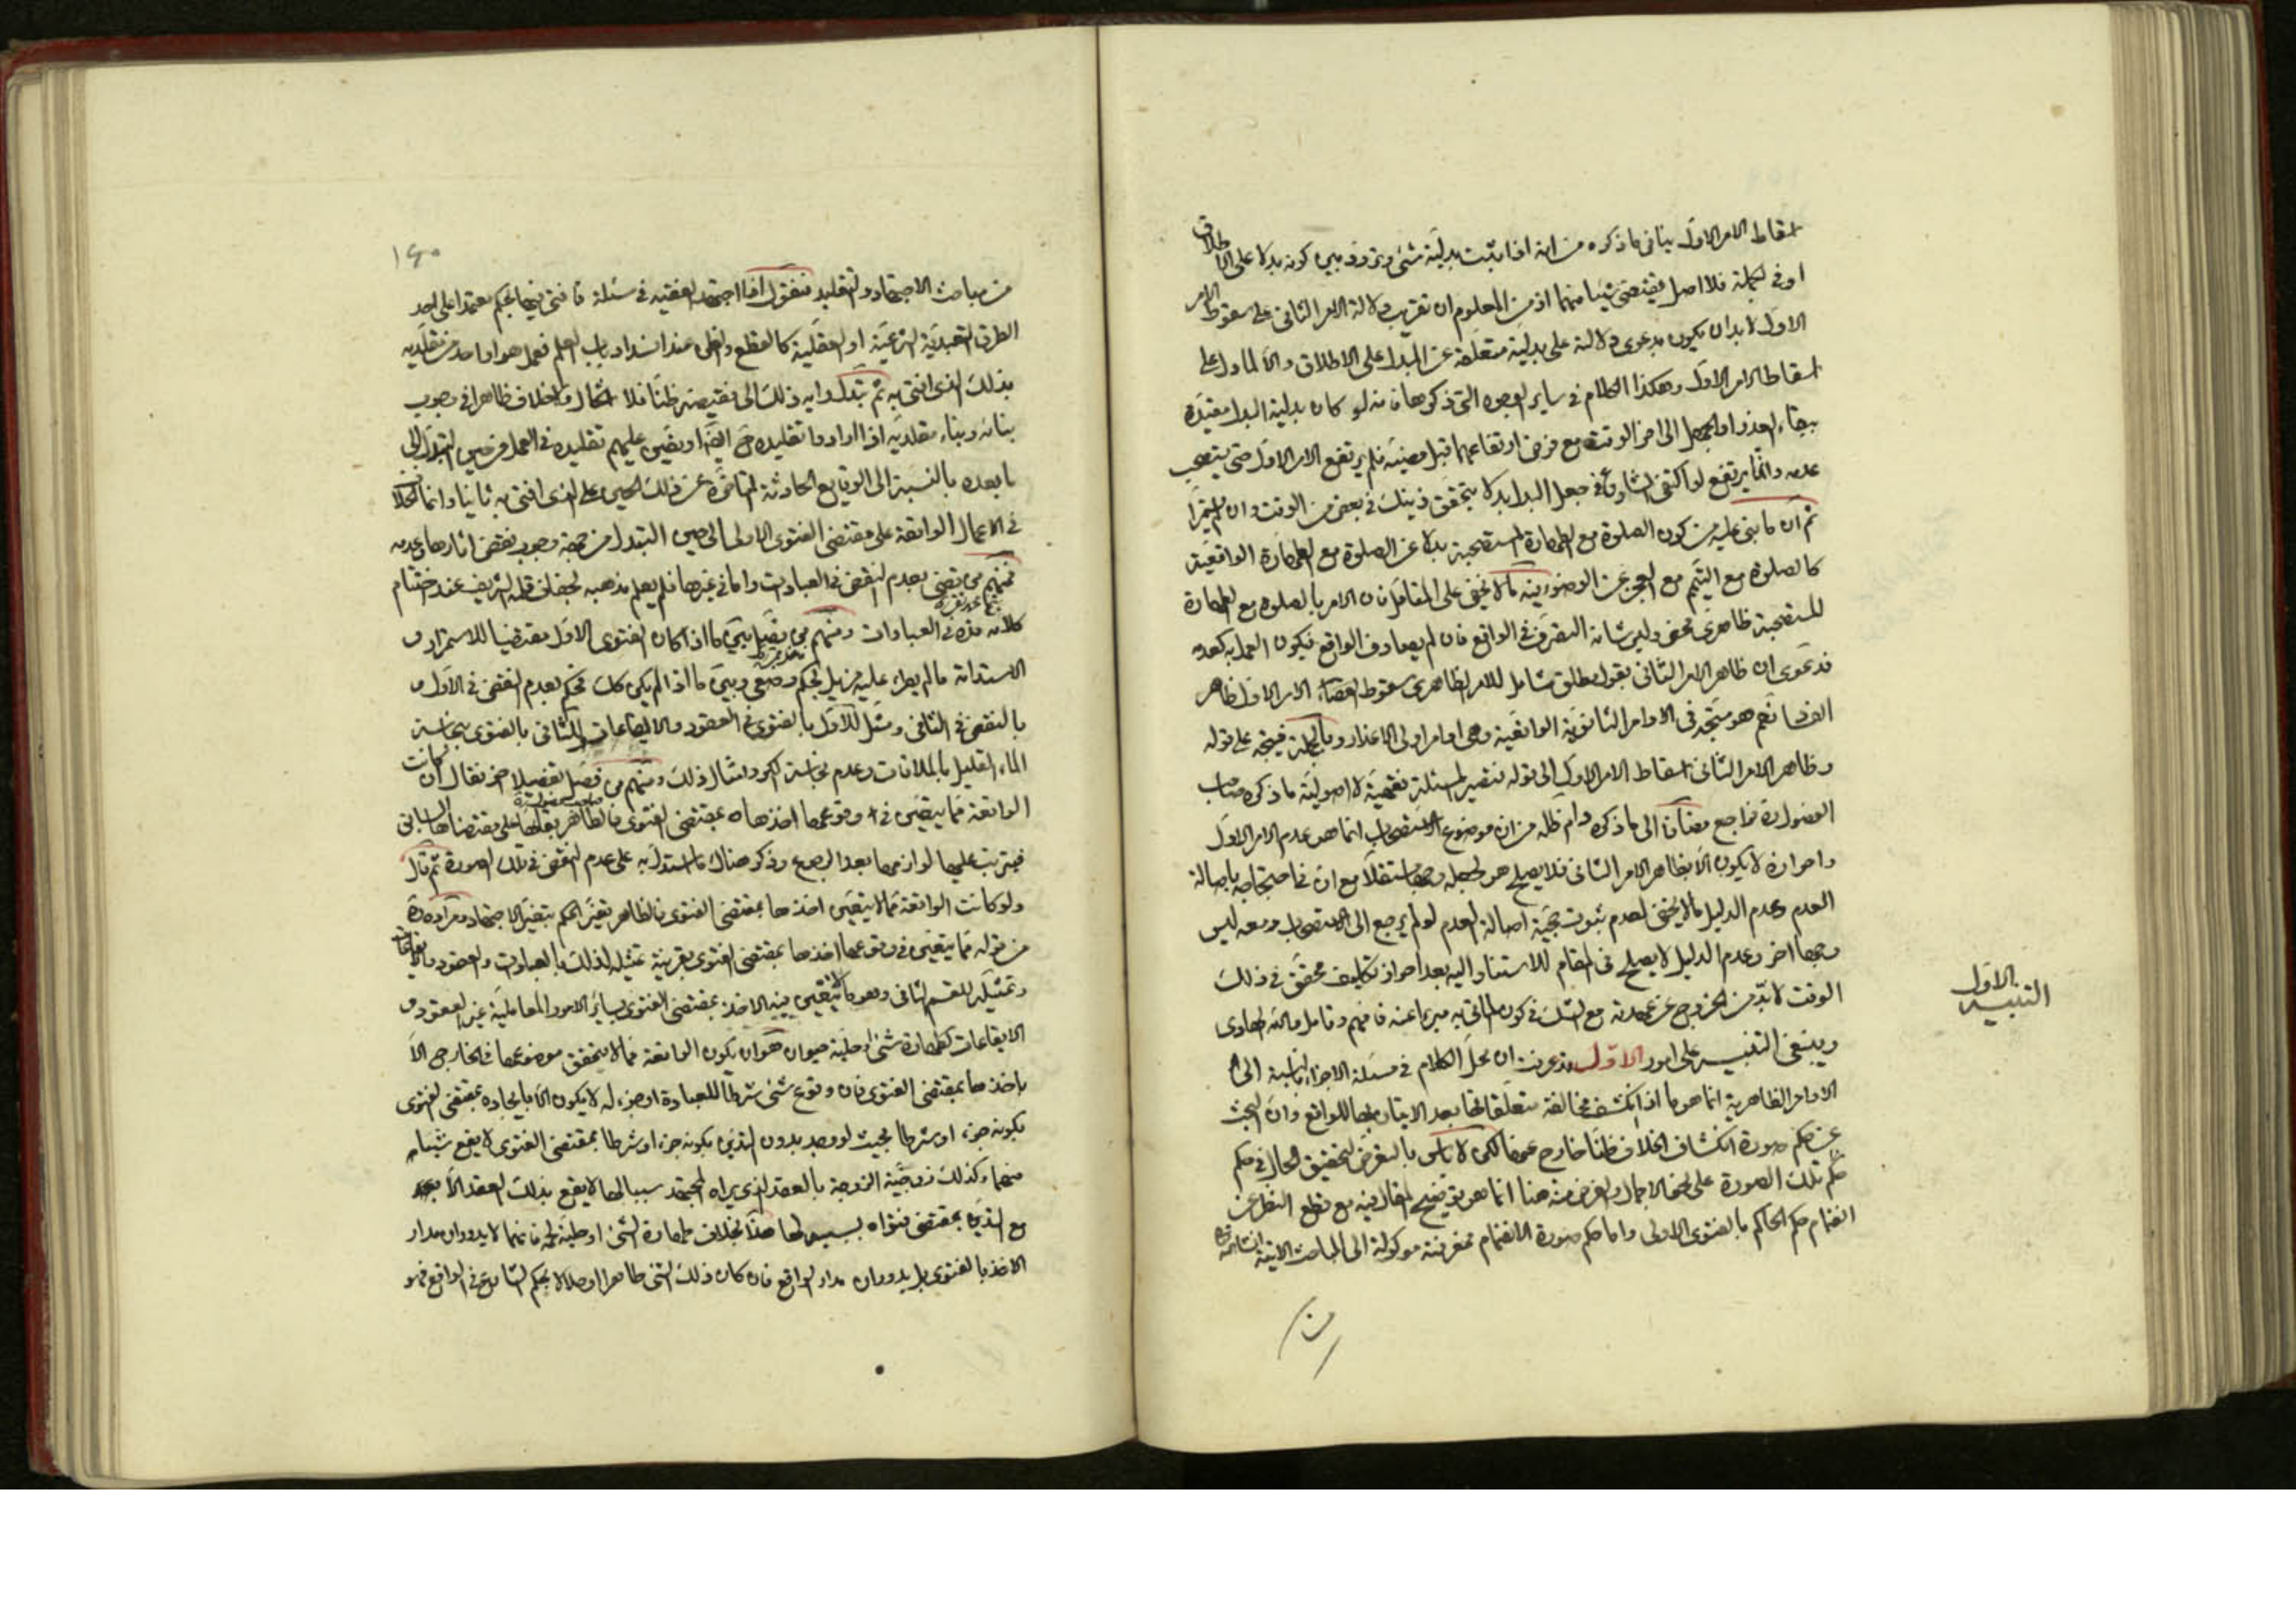 اسقاط الامر الاول ينافى ما ذكره من انه اذا ثبت بدليّة شئ وتردد بين كونه بدلا على الاطلاق
او فى الجملة فلا اصل يقتضى شيئا منهما اذ من المعلوم ان تقريب دلالة الامر الثانى على سقوط الامر
الاول لا بد ان يكون بدعوى دلالته على بدلية متعلقه عن المبدل على الاطلاق والا لما دل على
اسقاط الامر الاول وهكذا الكلام فى ساير الوجوه التى ذكرها فانه لو كان بدلية البدل مقيّدة
ببقاء العذر او الجهل الى اخر الوقت مع فرض ارتفاعهما قبل مضيّه فلم يرتفع الامر الاول حتى يستصحب
عدمه وانما يرتفع لو اكتفى الشارع فى جعل البدل بدلا بتحقق ذينك فى بعض من الوقت وان لم يستمرّا
ثم ان ما بنى عليه من كون الصلوة مع الطهارة المستصحبة بدلا عن الصلوة مع الطهارة الواقعية
كالصلوة مع التيمم مع العجز عن الوضوء فيه ما لا يخفى على المتأمل فان الامر بالصلوة مع الطهارة
المستصحبة ظاهرى محض وليس شانه التصرف فى الواقع فان لم يصادف الواقع فيكون العمل به كعدمه
فدعوى ان ظاهر الامر الثانى بقول مطلق شامل للامر الظاهرى سقوط القضاء الامر الاول ظاهر
الفساد نعم هو متجه فى الاوامر الثانوية الواقعية وهى اوامر اولى الاعذار وبالجملة فيتجه على قوله
وظاهر الامر الثانى اسقاط الامر الاول الى قوله فتصير المسئلة فقهية لا اصولية ما ذكره صاحب
الفصول ره فراجع مضافا الى ما ذكره دام ظله من ان موضوع الاستصحاب انما هو عدم الامر الاول
واحرازه لا يكون الا بظاهر الامر الثانى فلا يصلح هو لجعله وجها مستقلا مع ان فى احتجاجه باصالة
العدم وعدم الدليل ما لا يخفى لعدم ثبوت حجية اصالة العدم لو لم يرجع الى الاستصحاب ومعه ليس
وجها اخر وعدم الدليل لا يصلح فى المقام للاستناد اليه بعد احراز تكليف محقق فى ذلك
الوقت لا بدّ من الخروج عن عهدته مع الشك فى كون الماتى به مبرءا عنه فافهم وتامل والله الهادى
وينبغى التنبيه على امور الاول قد عرفت ان محل الكلام فى مسئلة الاجزاء بالنسبة الى
الاوامر الظاهرية انما هو ما اذا انكشف مخالفة متعلقاتها بعد الاتيان بها للواقع وان البحث
عن حكم صورة انكشاف الخلاف ظنّا خارج عنها لكن لا بأس بالتعرض لتحقيق الحال فى حكم
حكم تلك الصورة على نحو الاجمال والغرض منه هنا انما هو توضيح المقال فيه مع قطع النظر عن
انضمام حكم الحاكم بالفتوى الاولى واما حكم صورة الانضمام فمعرفته موكولة الى المباحث الاتية انشاء الله
التنبيه الاول
من
١٤٠
من مباحث الاجتهاد والتقليد فنقول اذا اجتهد الفقيه فى مسئلة فافتى فيها بحكم معتمدا على احد
الطرق التعبدية الشرعية او العقلية كالقطع والظن عند انسداد باب العلم فعمل هو او احد من مقلديه
بذلك الذى افتى به ثم تبدل رايه ذلك الى نقيضه ظنا فلا اشكال ولا خلاف ظاهرا فى وجوب
بنائه وبناء مقلديه اذا ارادوا تقليده ايضا او تعيّن عليهم تقليده فى العمل من حين التبدل الى
ما بعده بالنسبة الى الوقايع الحادثة المتاخرة عن ذلك الحين على الذى افتى به ثانيا وانما الخلاف
فى الاعمال الواقعة على مقتضى الفتوى الاولى الى حين التبدل من جهة وجوب نقض اثارها وعدمه
فمنهم من يقضى بعدم النقض فى العبادات واما فى غيرها فلم يعلم مذهبه لجفاف قلمه الشريف عند اختتام
كلامه هذه فى العبادات ومنهم من فصّل بين ما اذا كان الفتوى الاول مقتضيا للاستمرار و
الاستدامة ما لم يطرء عليه مزيل بحكم وضعى وبين ما اذا لم يكن كك فحكم بعدم النقض فى الاول و
بالنقض فى الثانى ومثّل للاول بالفتوى فى العقود والايقاعات وللثانى بالفتوى بنجاسة
الماء القليل بالملاقات وعدم نجاسة الكر وامثال ذلك ومنهم من فصّل تفصيلا اخر فقال ان كانت
الواقعة مما يتعيّن فى وقوعها اخذها بمقتضى الفتوى فالظاهر بقائها على مقتضاها السابق
فيترتب عليها لوازمها بعد الرجوع وذكر هناك ما استدل به على عدم النقض فى تلك الصورة ثم قال
ولو كانت الواقعة مما لا يتعيّن اخذها بمقتضى الفتوى فالظاهر تغيّر الحكم بتغيّر الاجتهاد ومراده ره
من قوله مما يتعيّن فى وقوعها اخذها بمقتضى الفتوى بقرينة تمثيله لذلك بالعبادات والعقود والايقاعات
وتمثيله للقسم الثانى وهو ما لا يتعيّن فيه الاخذ بمقتضى الفتوى بسائر الامور المعاملية غير العقود و
الايقاعات كطهارة شئ او حلية حيوان هو ان تكون الواقعة مما لا يتحقق موضوعها فى الخارج الا
باخذها بمقتضى الفتوى فان وقوع شئ شرطا للعبادة او جزء له لا يكون الا بايجاده بمقتضى الفتوى
بكونه جزء او شرطا بحيث لو وجد بدون التدين بكونه جزء او شرطا بمقتضى الفتوى لا يقع شيئا
منهما وكذلك زوجية الزوجة بالعقد الذى يراه المجتهد سببا لها لا يقع بذلك العقد الا
مع التدين بمقتضى فتواه بسببيته لها هذا بخلاف طهارة الشئ او حلية لحم فانهما لا يدوران مدار
الاخذ بالفتوى بل يدوران مدار الواقع فان كان ذلك الشئ طاهرا او حلالا بحكم الشارع فى الواقع فهو